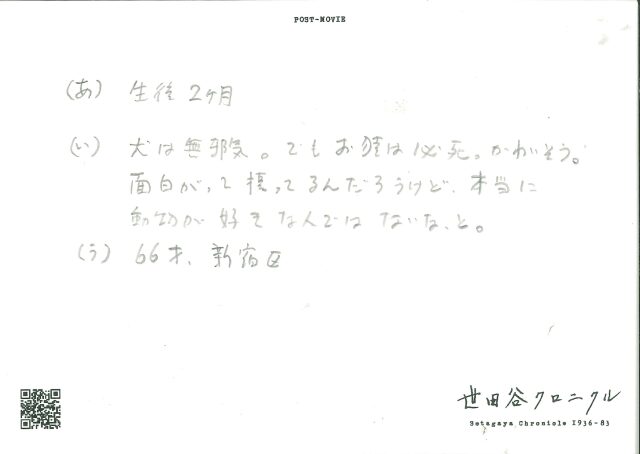 POST-MOVIE
(あ) 生後2ヶ月
(い) 犬は無邪気。でもお猿は必死。かわいそう。
面白がって撮ってるんだろうけど、本当に
動物が好きなんではないな、と。
(う) 66才、新宿区
世田谷クロニクル
Setagaya Chronicle 1936-83